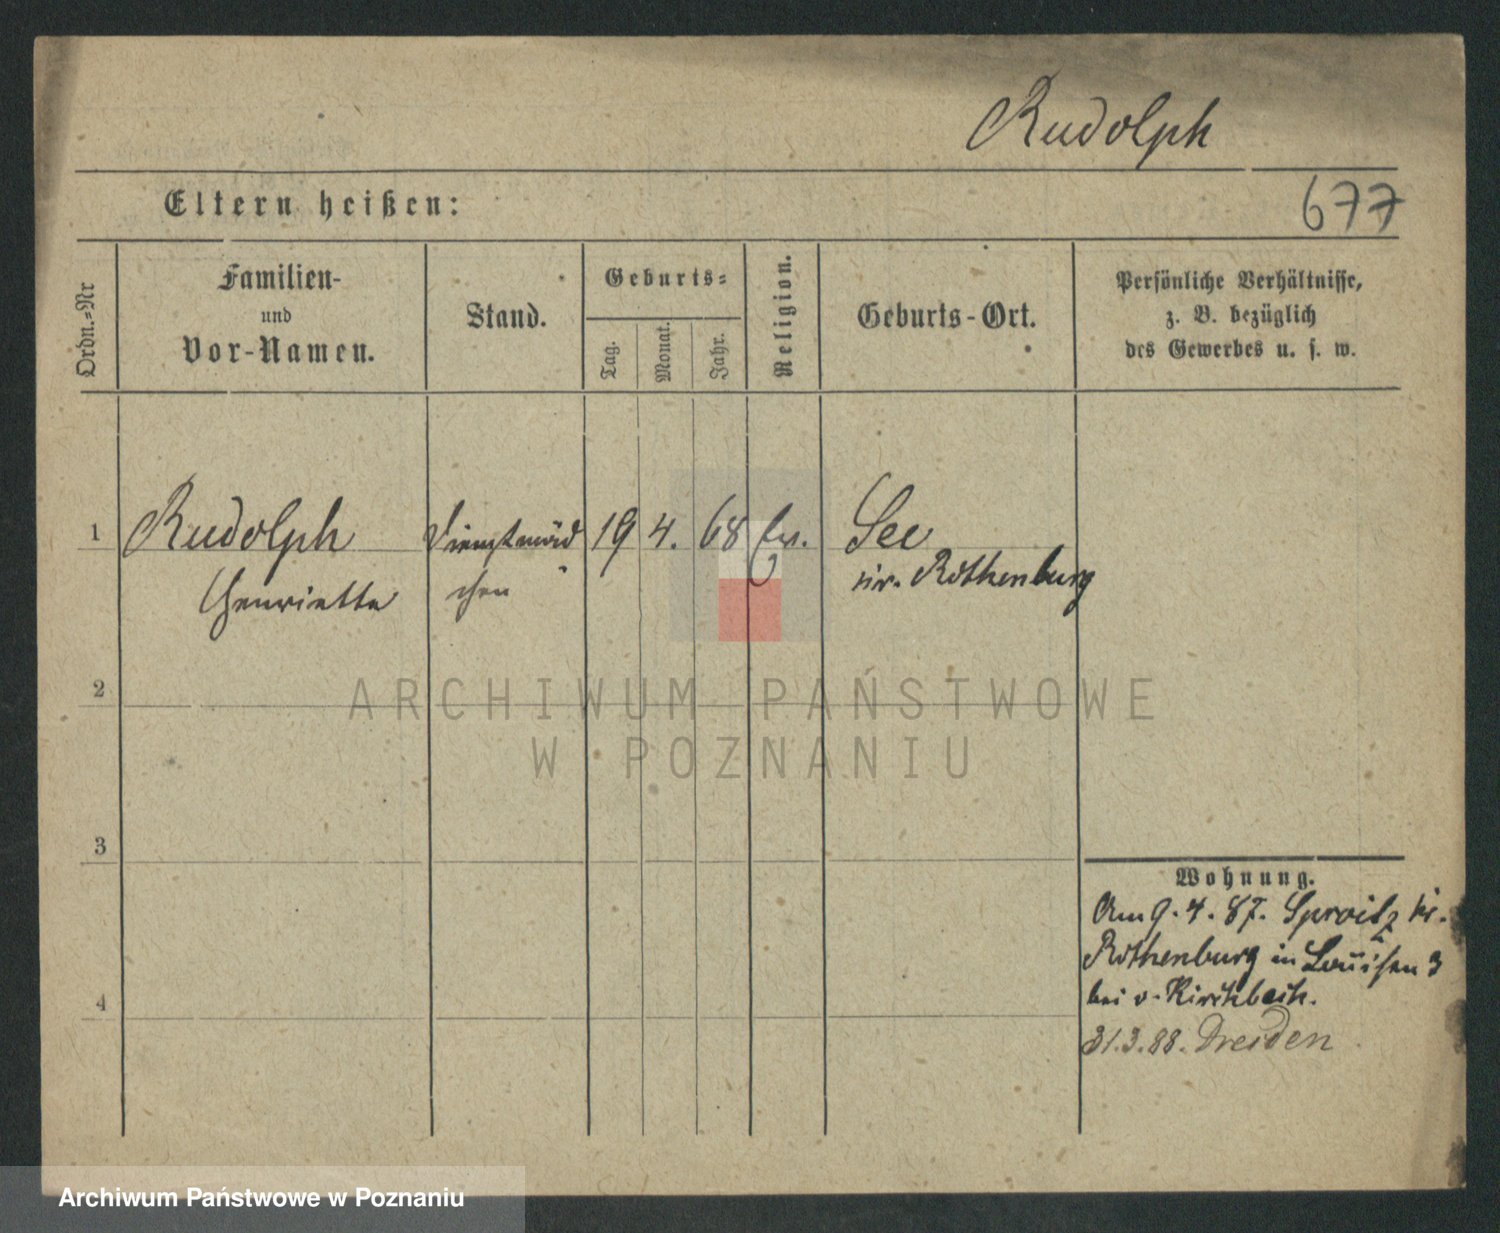 Rudolph
Eltern heißen:
677
Ordn.=Nr
Familien-
und
Vor-Namen.
Stand.
Geburts=
Tag.
Monat.
Jahr.
Religion.
Geburts-Ort.
Persönliche Verhältnisse,
z. B. bezüglich
des Gewerbes u. s. w.
1 Rudolph Dienstmäd 19 4. 68 See
Henriette chen Kr. Rothenburg
2
3
4
Wohnung.
Am 9. 4. 87. Sproitz Kr.
Rothenburg in Louisen 3
bei v. Kirchbach.
31.3.88. Dresden
ARCHIWUM PAŃSTWOWE
W POZNANIU
Archiwum Państwowe w Poznaniu